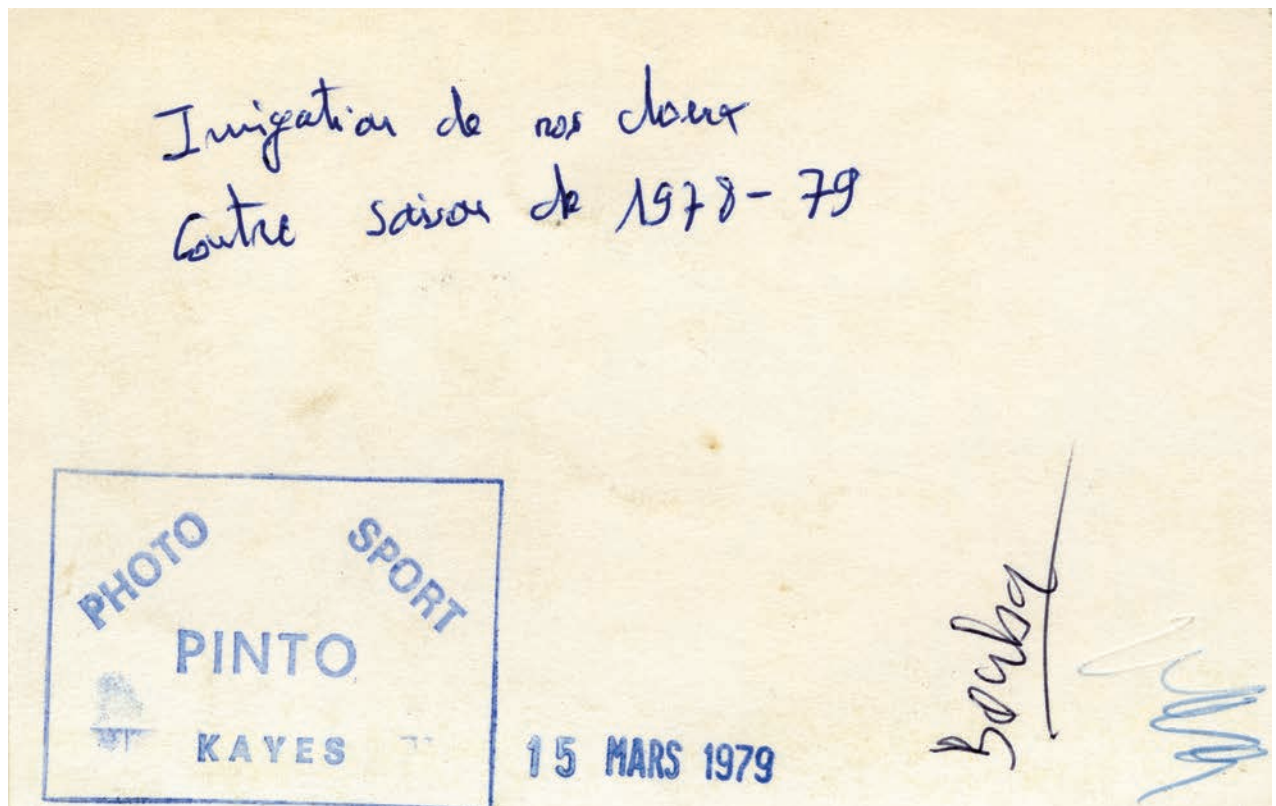 Irrigation de nos choux
Contre saison de 1978-79
PHOTO SPORT
PINTO
KAYES
15 MARS 1979
Bouba